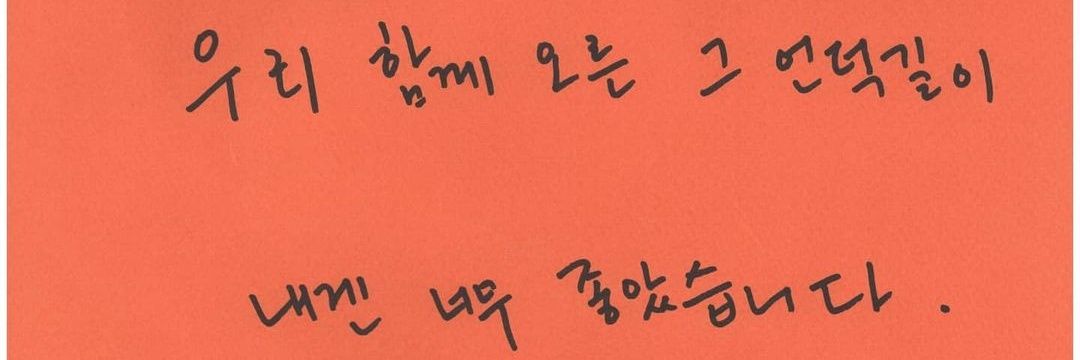 우리 함께 오른 그 언덕길이
내겐 너무 좋았습니다.